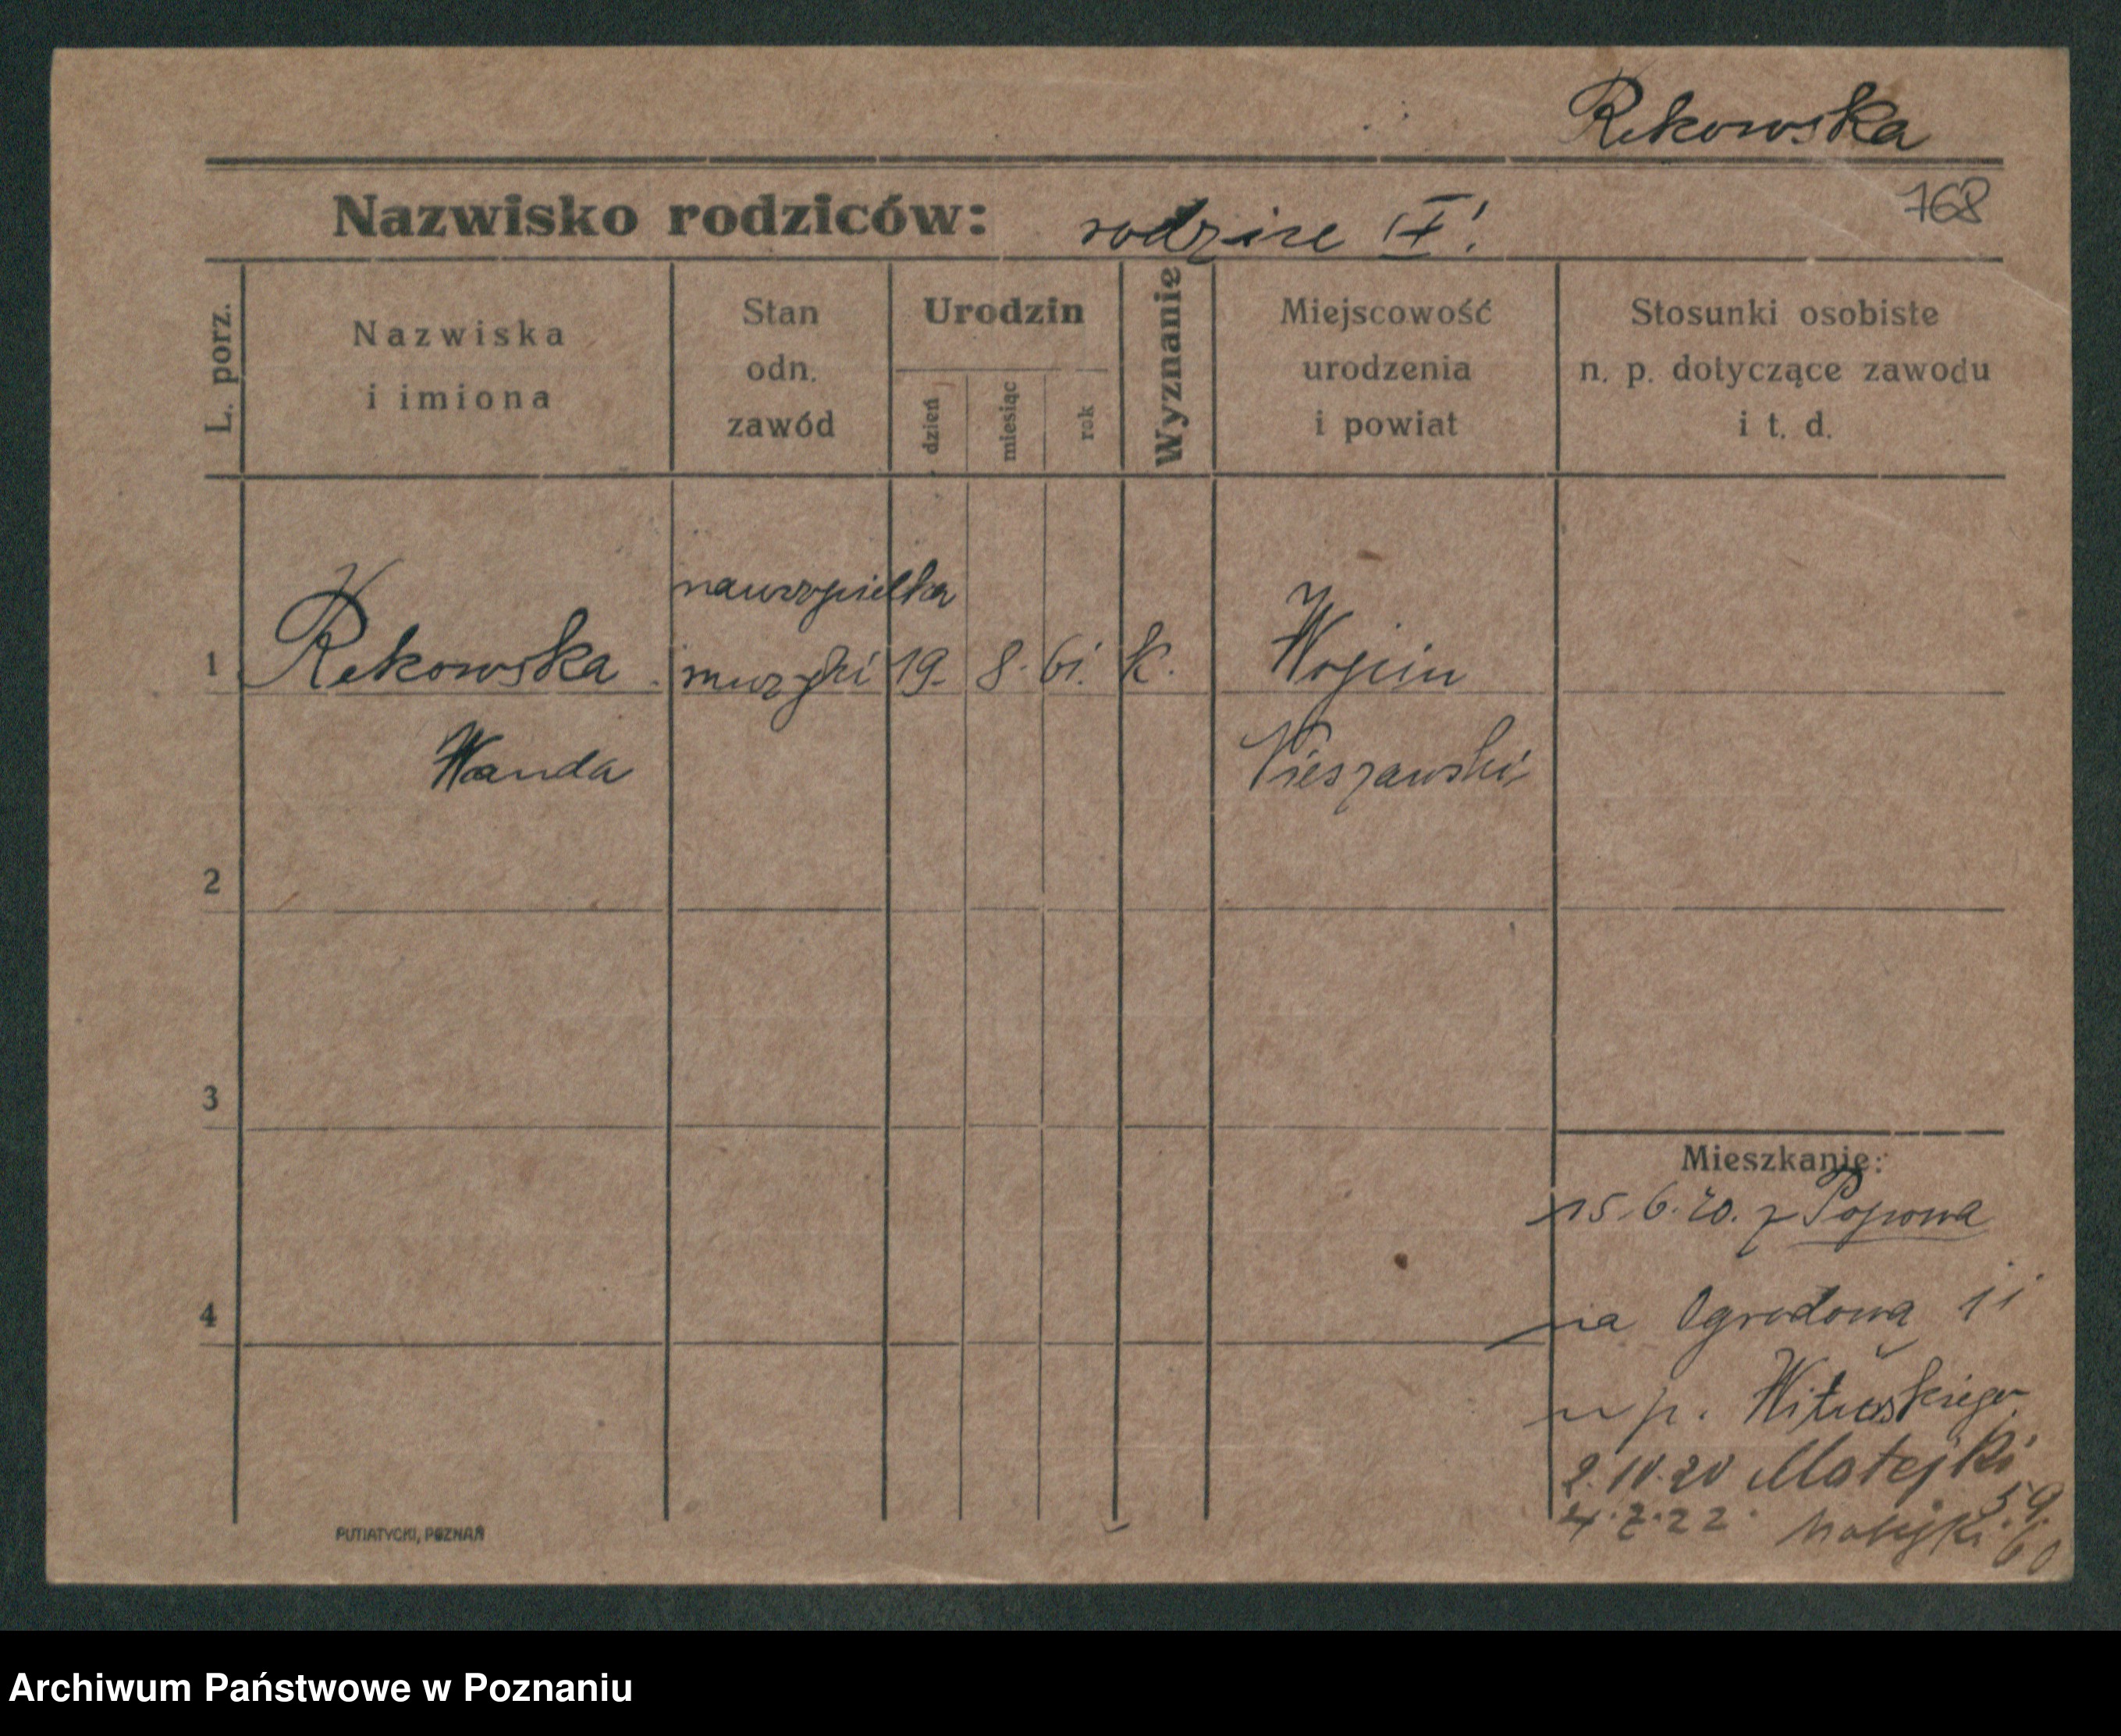 Rekowska
768
Nazwisko rodziców: rodzice
L. porz.
Nazwiska
i imiona
Stan
odn.
zawód
Urodzin
dzień
miesiąc
rok
Wyznanie
Miejscowość
urodzenia
i powiat
Stosunki osobiste
n. p. dotyczące zawodu
i t. d.
nauczycielka
1 Rekowska muzyki 19. 8. 61. K. Wójcin
Wanda Nieszawski
2
3
Mieszkanie:
15.6.20. z Popowa
4
na Ogrodową 11
u p. Wituskiego
2.10.20 Matejki 59.
4.7.22. Matejki 60
PUTIATYCKI, POZNAŃ
Archiwum Państwowe w Poznaniu